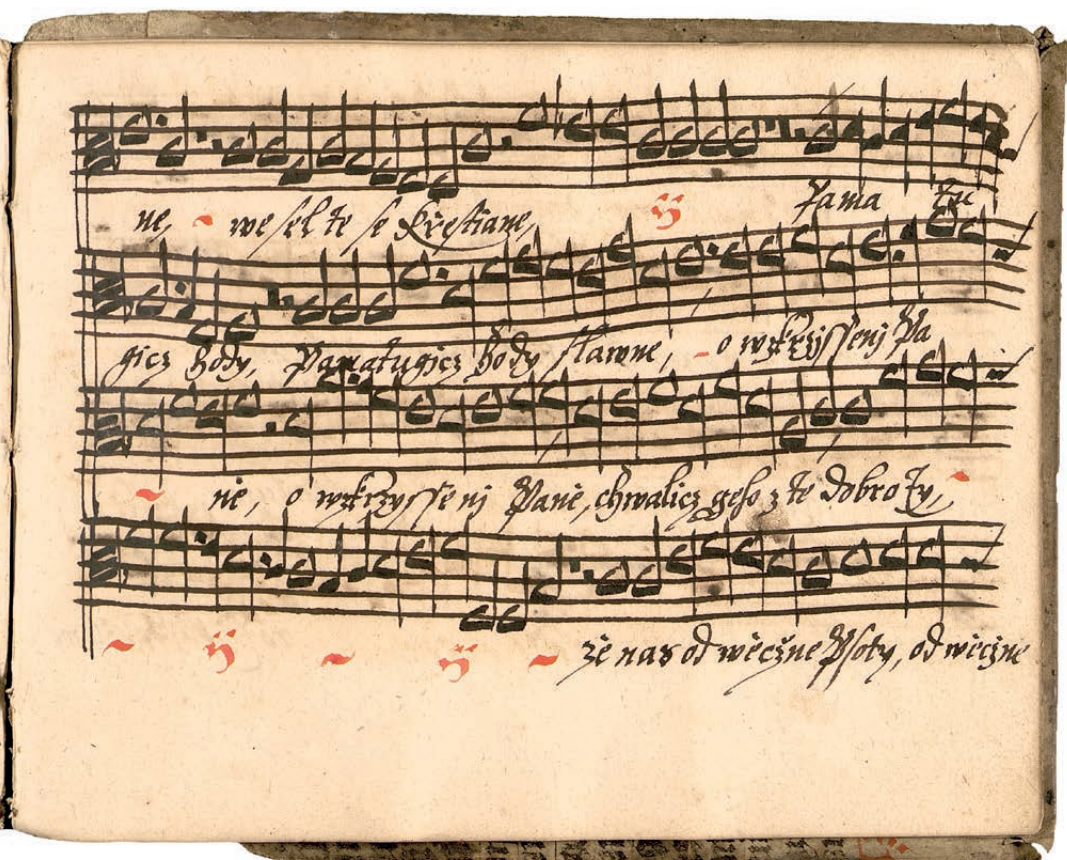 ne, ~ wesel te se křestiane, ij Pama tu
gicz hody, Pamatugicz hody slawne, ~ o wzkrzyssenj Pa
~ nie, o wzkrzysse nj Panie, chwalicz geho z te dobroty, ~
~ ij ~ ij ~ že nas od wěčzne Psoty, od wěčzne